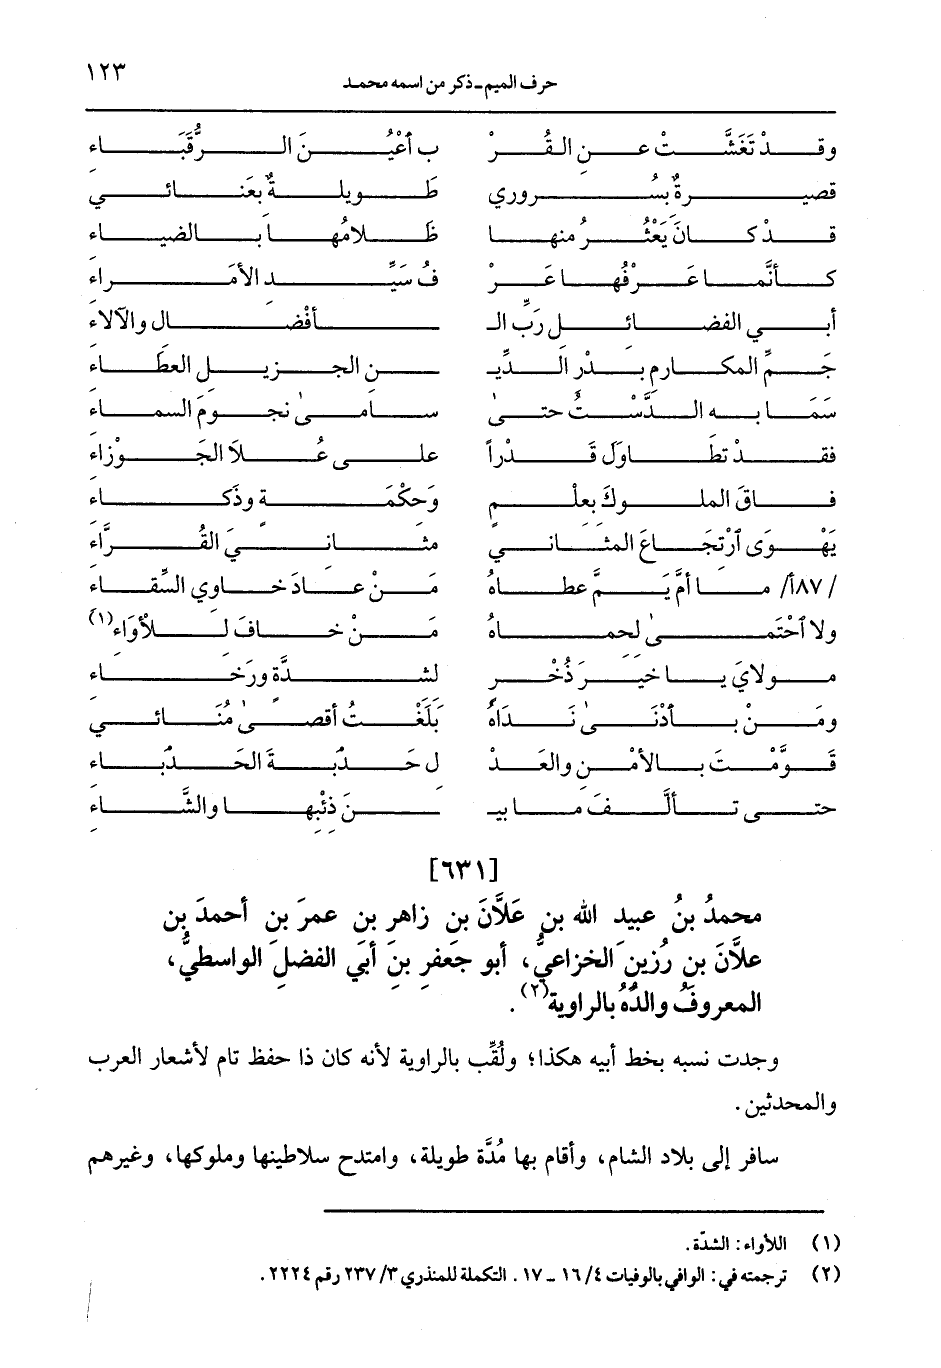 حرف الميم ـ ذكر من اسمه محمد ١٢٣
وقدْ تَغَشَّتْ عن القُرْ ب أعْيُنَ الرُّقَبَاءِ
قصيرةٌ بسُروري طَويلةٌ بعَنائي
قدْ كانَ يَعْثُرُ منها ظَلامُها بالضياءِ
كأنَّما عَرْفُها عَرْ فُ سَيِّد الأمَراءِ
أبي الفضائلِ رَبِّ الـ ـأفْضالِ والآلاءِ
جَمِّ المكارمِ بذْرِ الدِّيـ ـنِ الجزيلِ العطَاءِ
سَمَا به الدَّسْتُ حتىٰ سامىٰ نجومَ السماءِ
فقدْ تطَاوَلَ قَدْراً على عُلاَ الجَوْزاءِ
فاقَ الملوكَ بعلْمٍ وَحكْمَةٍ وذَكاءِ
يَهْوَى ٱرْتجَاعَ المثاني مثانيَ القُرَّاءِ
/ ٨٧أ/ ما أمَّ يَمَّ عطاهُ مَنْ عادَ خاوي السِّقاءِ
ولا ٱحْتَمىٰ لحماهُ مَنْ خافَ للأْوَاءِ(١)
مولايَ يا خيرَ ذُخْرٍ لشدَّةٍ ورَخاءِ
ومَنْ بأدْنىٰ نَدَاهُ بَلَغْتُ أقصىٰ مُنَائي
قَوَّمْتَ بالأمْنِ والعَدْ لِ حَدْبَةَ الحَدْبَاءِ
حتى تألَّفَ ما بيـ ـنَ ذِئْبِها والشَّاءِ
[٦٣١]
محمدُ بنُ عبيد الله بنِ عَلاَّنَ بنِ زاهرِ بنِ عمرَ بنِ أحمدَ بنِ
علاَّنَ بنِ رُزينِ الخزاعيُّ، أبو جَعفرِ بنِ أبي الفضلِ الواسطيُّ،
المعروفُ والدُهُ بالراوية(٢).
وجدت نسبه بخط أبيه هكذا؛ ولُقِّب بالراوية لأنه كان ذا حفظ تام لأشعار العرب
والمحدثين.
سافر إلى بلاد الشام، وأقام بها مُدَّة طويلة، وامتدح سلاطينها وملوكها، وغيرهم
(١) اللأواء: الشدّة.
(٢) ترجمته في: الوافي بالوفيات ٤/ ١٦ ـ ١٧. التكملة للمنذري ٣/ ٢٣٧ رقم ٢٢٢٤.